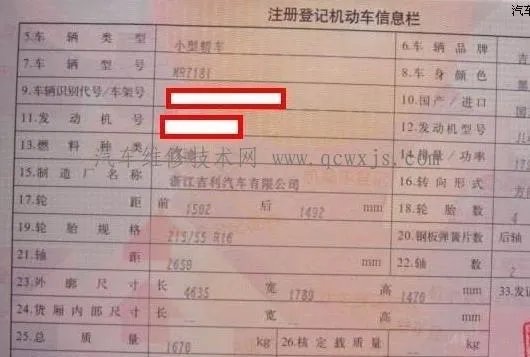 汽车
注册登记机动车信息栏
5.车辆类型 小型轿车 6.车辆品牌 吉
7.车辆型号 MR7181 8.车身颜色 黑
9.车辆识别代号/车架号 10.国产/进口
11.发动机号 12.发动机型号
13.燃料种类 14.排量/功率
汽车维修技术网 www.qcwxjs.com
15.制造厂名称 浙江吉利汽车有限公司 16.转向形式 方
17.轮距 前 1502 后 1492 mm 18.轮胎数 4
19.轮胎规格 215/55 R16 20.钢板弹簧片数 后轴
21.轴距 2650 mm 22.轴数 2
23.外廓尺寸 长 4635 宽 1789 高 1470 mm 33.发证
24.货厢内部尺寸 长 宽 高 mm
25.总质量 1670 kg 26.核定载质量 kg